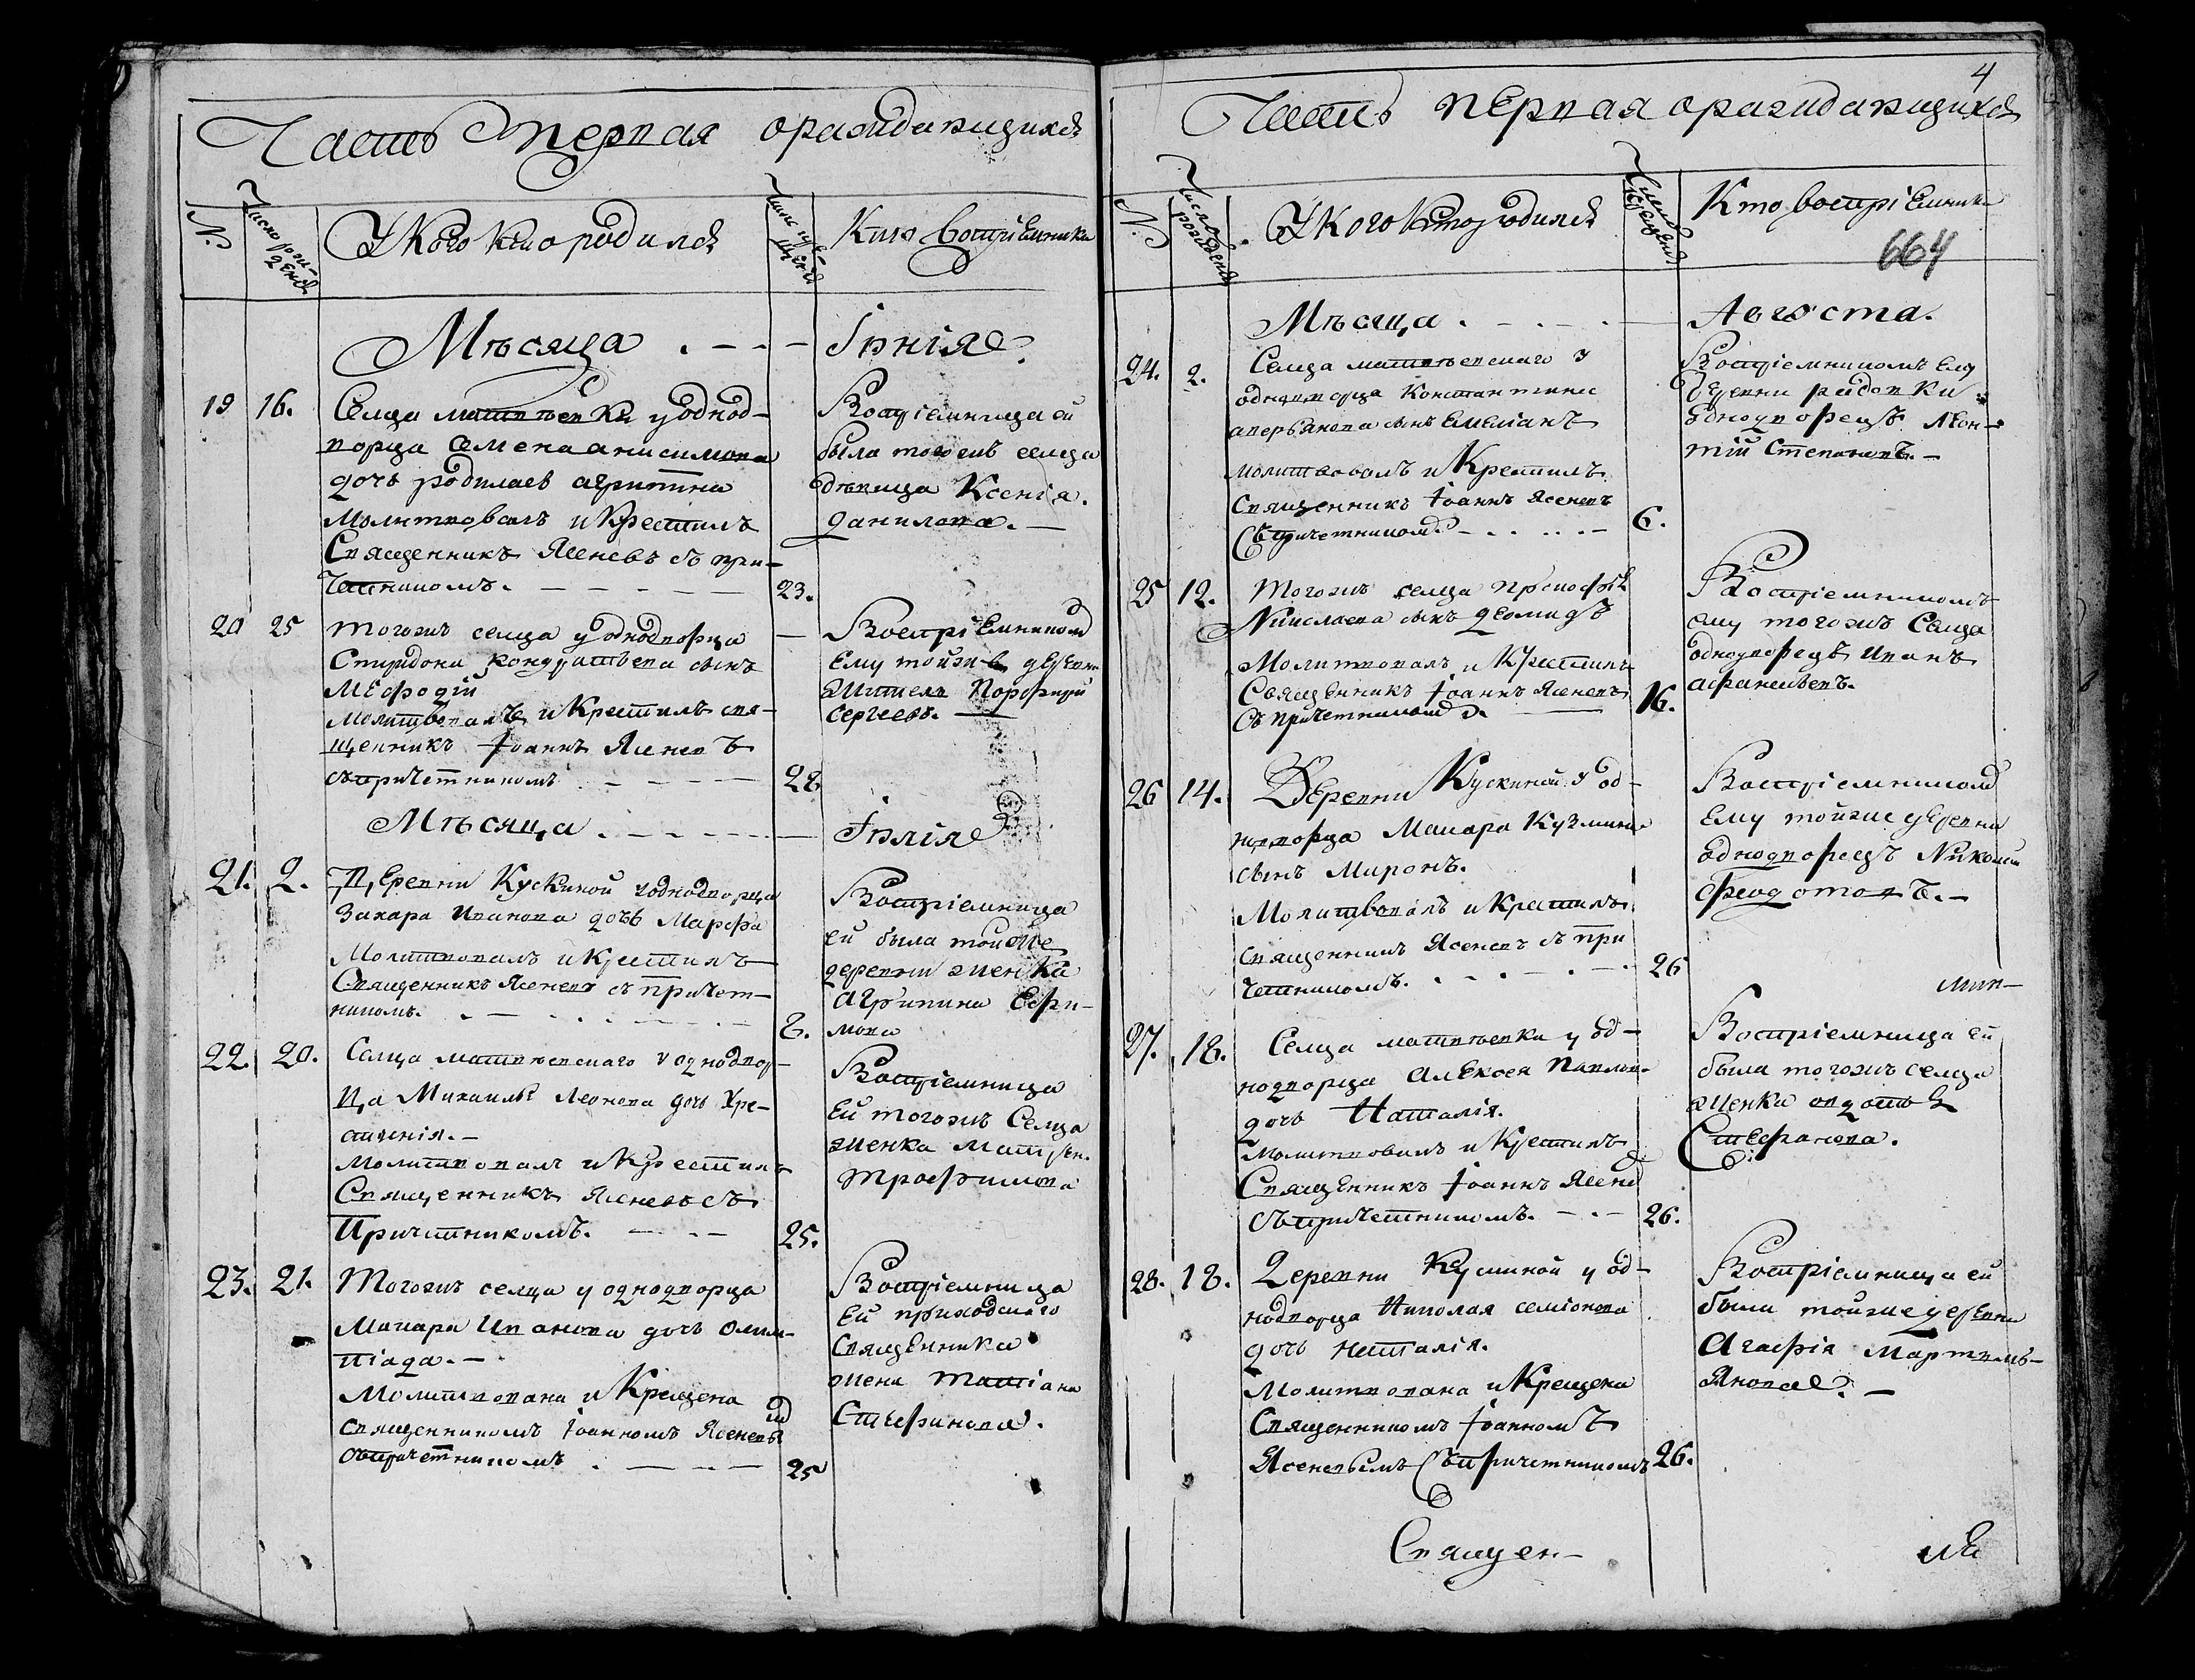 Часть первая о раждающихся
N.
Число рож-
денія
У Кого кто родился
Число кре-
щенія
Кто Воспріемники
Мѣсяца . - - - Іюнія
19 16. Сельца матвѣевки у однод-
ворца Семена анисимова
дочь родилась агрипина
Молитвовалъ и Крестилъ
Священникъ Ясеневъ съ при-
четникомъ. - - - - 23.
Воспріемница ей
была тогожъ сельца
дѣвица Ксенія
данилова. -
20 25 тогожъ сельца у однодворца
Спиридона кондратьева сынъ
Мефодій
молитвовалъ и Крестилъ свя-
щенникъ Іоаннъ Ясеневъ
съ причетникомъ . - - - 28
Воспріемникомъ
Ему тойжъ деревни
житель Порфирій
Сергеевъ. -
Мѣсяца . - - - Іюлія
21. 2. Деревни Кускиной у однодворца
Захара Иванова дочь Марфа
Молитвовалъ и Крестилъ
Священникъ Ясеневъ съ причет-
никомъ. - - - - 8.
Воспріемница
ей была тойже
деревни женка
Агрипина Ефи-
мова
22. 20. Сельца матвѣевскаго у однодвор-
ца Михаилы Леонева дочь Хре-
стинія. -
молитвовалъ и Крестилъ
Священникъ Ясеневъ съ
Причетникомъ. - - - 25.
Воспріемница
Ей тогожъ Сельца
женка Матрен.
трофимова
23. 21. Тогожъ сельца у однодворца
Макара Иванова дочь Олим-
піада. -
Молитвована и Крещена
священникомъ Іоанномъ Ясеневымъ
съ причетникомъ . - - - 25
Воспріемница
Ей приходскаго
Священника
жена Татіана
Стефанова.
4
Часть первая о раждающихся
N.
Число
рожденія
У Кого Кто родился
Число
Крещенія
Кто воспріемники
664
Мѣсяца . - . - . - Августа.
24. 2. Сельца матвѣевскаго у
однодворца Константина
аверьянова сынъ Емеліанъ
молитвовалъ и Крестилъ
Священникъ Іоаннъ Ясеневъ
Съ причетникомъ - . . . - 6.
Воспріемникомъ Ему
деревни
однодворецъ Леон-
тій Степановъ. -
25 12. тогожъ сельца
сынъ деомидъ
Молитвовалъ и Крестилъ
Священникъ Іоаннъ Ясеневъ
съ причетникомъ. - 16.
Воспріемникомъ
ему тогожъ Сельца
однодворецъ Иванъ
афанасьевъ.
26 14. Деревни Кускиной у од-
нодворца Макара Кузмина
сынъ Миронъ.
Молитвовалъ и Крестилъ
священникъ Ясеневъ съ при
четникомъ. . - . - . - 26
Воспріемникомъ
Ему тойже деревни
однодворецъ Николай
Феодотовъ. -
27. 18. Сельца матвѣевки у од-
нодворца Алексея Павлова
дочь Наталія.
молитвовалъ и Крестилъ
Священникъ Іоаннъ Ясенев
Съ причетникомъ. - . - 26.
Воспріемница ей
была тогожъ сельца
женка авдотья
Стефанова.
28. 18. Деревни Кускиной у од-
нодворца Николая семіонова
дочь Наталія.
Молитвована и Крещена
Священникомъ Іоанномъ
Ясеневымъ Съ причетникомъ 26.
Воспріемница ей
была тойже деревни
Агафія Мартемь-
янова. -
Священ-